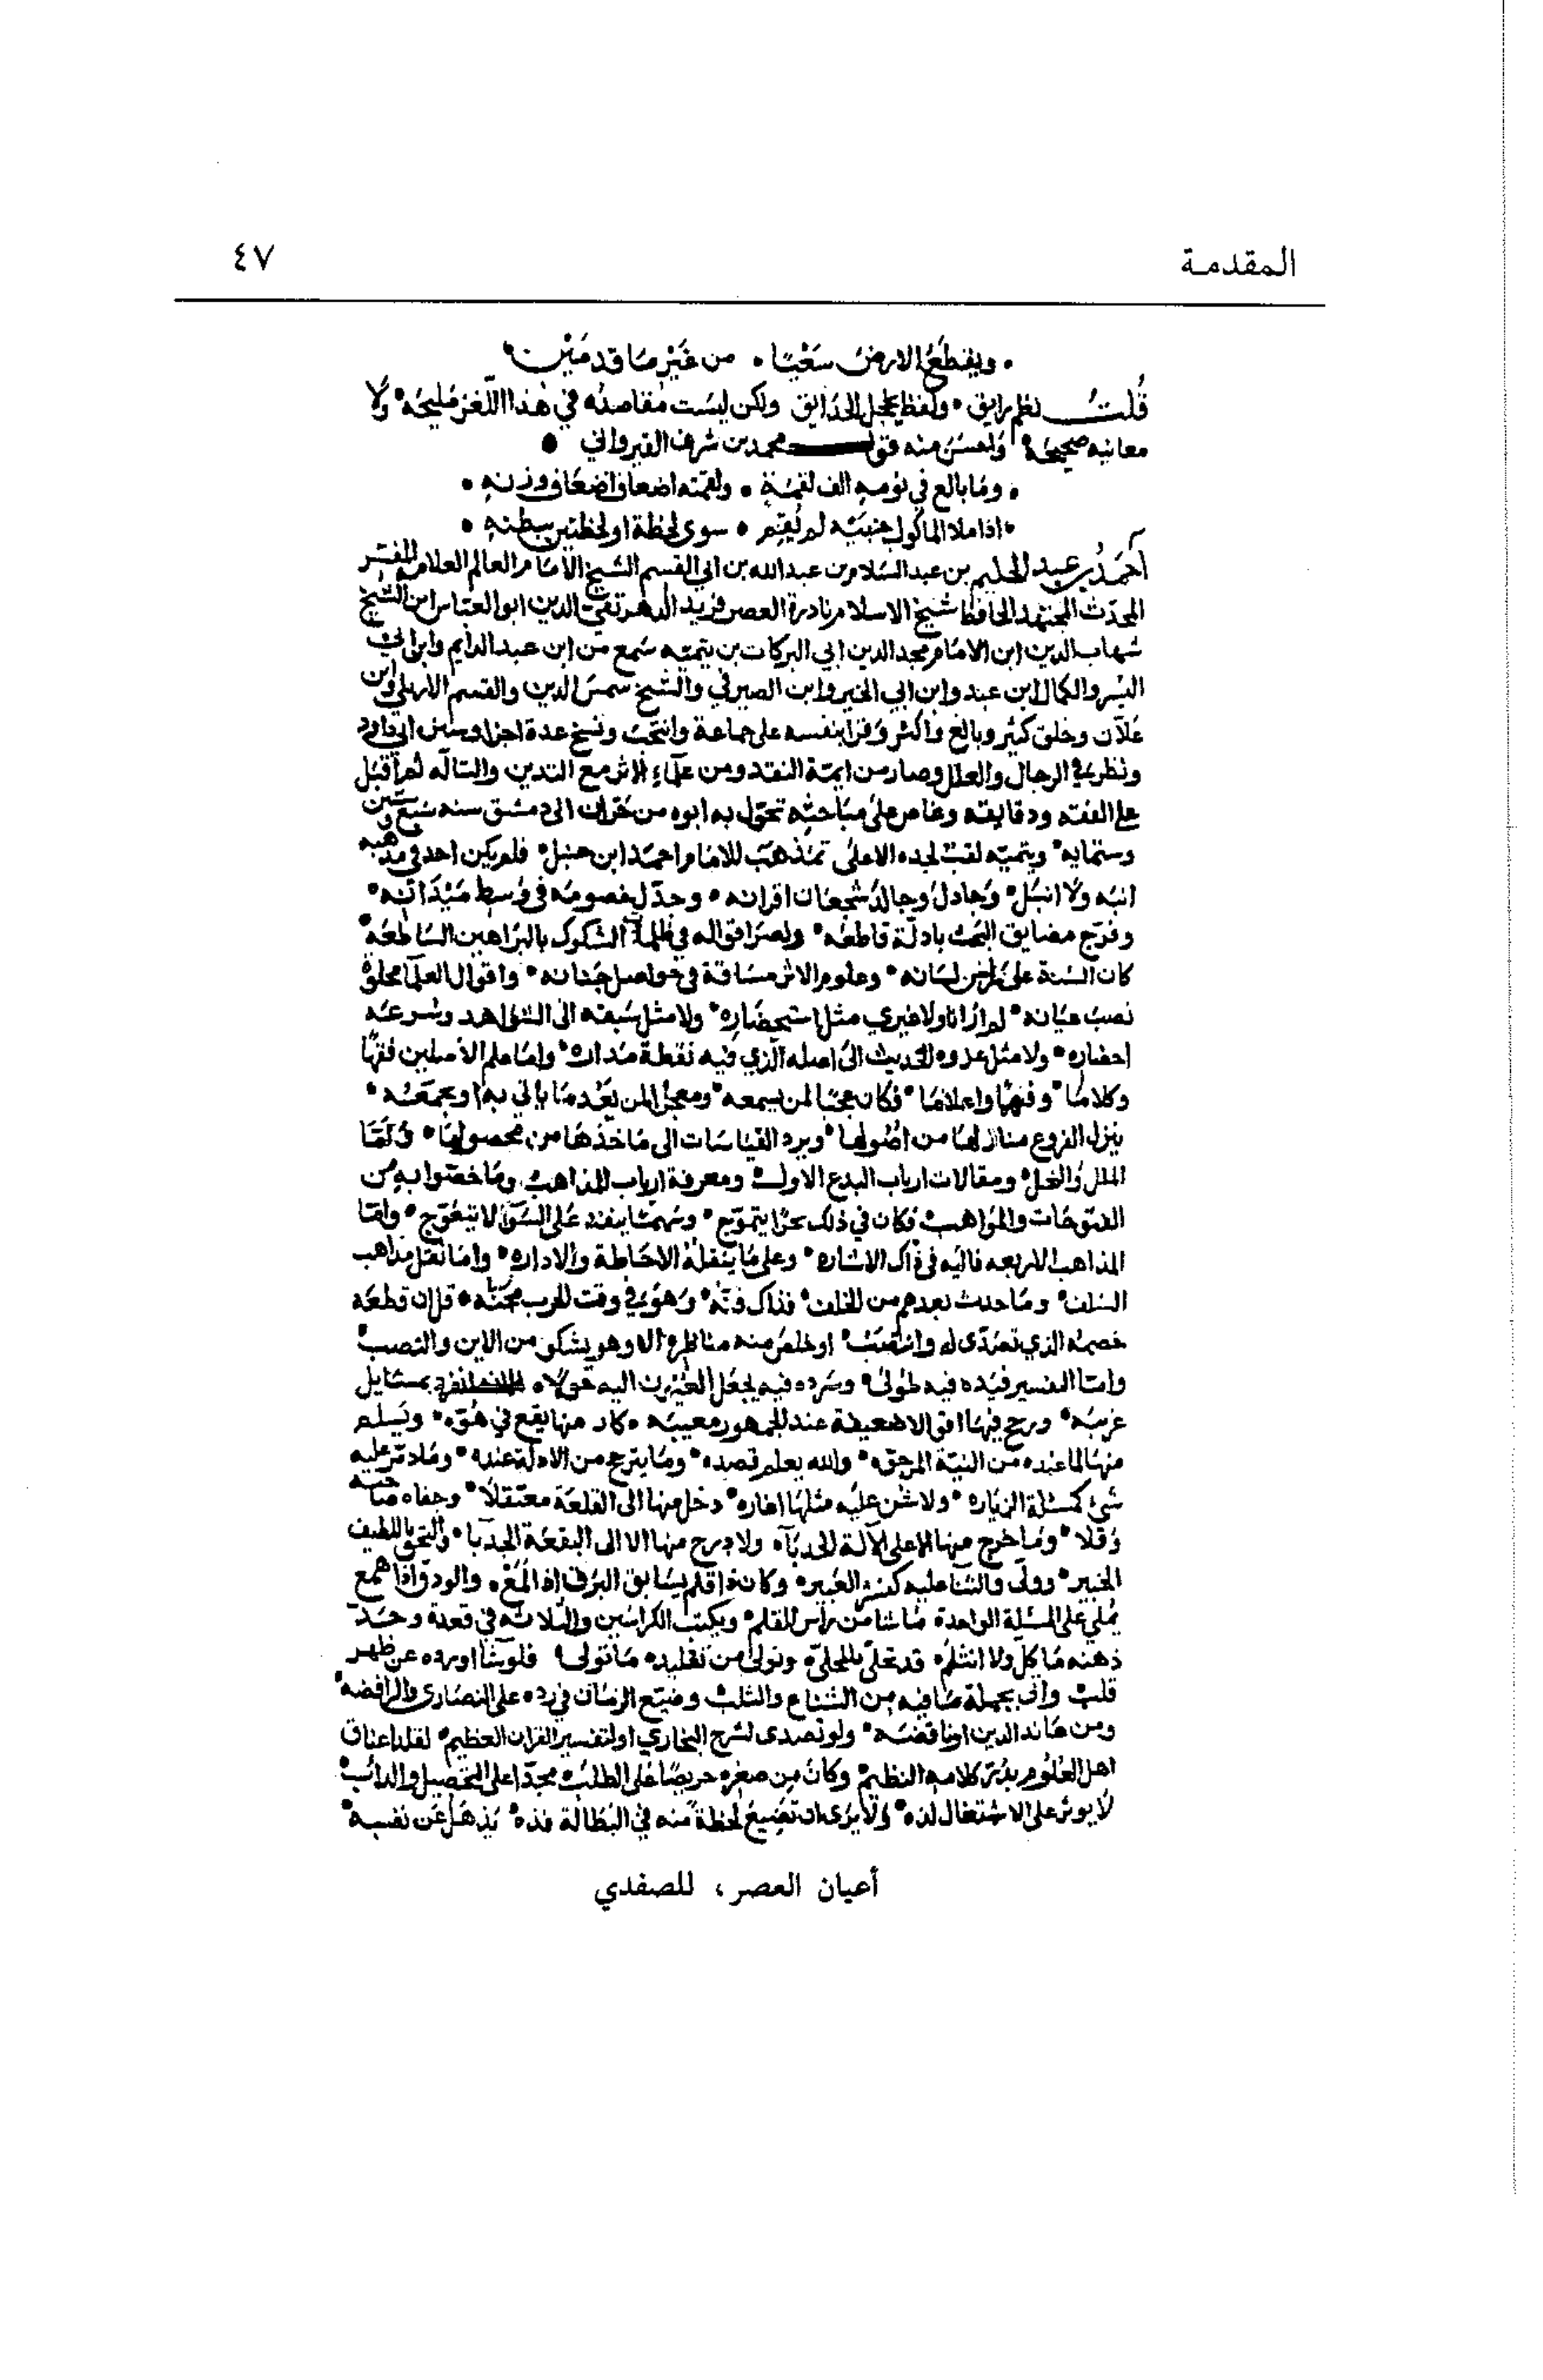 المقدمة
٤٧
ويقطع الارض سعيا • من غير ما قدمين •
قلت نظم رايق • ولفظ يخجل الحدايق ولكن ليست مقاصده في هذا اللغز مليحه • ولا
معانيه صحيحه • واحسن منه قول محمد بن شرف القيرواني •
• وما بالع في نومه الف لقمة • ولقمته اضعاف اضعاف وزنه •
• اذا ملا الماكول جنبيه لم يقم • سوى لحظة او لحظتين ببطنه •
احمد بن عبد الحليم بن عبد السلام بن عبد الله بن ابي القسم الشيخ الامام العالم العلامة المفسر
المحدث المجتهد الحافظ شيخ الاسلام نادرة العصر فريد الدهر تقي الدين ابو العباس ابن الشيخ
شهاب الدين ابن الامام مجد الدين ابي البركات بن تيميه سمع من ابن عبد الدايم وابن ابي
اليسر والكمال ابن عبد وابن ابي الخير وابن الصيرفي والشيخ شمس الدين والقسم الاربلي وابن
علان وخلق كثير وبالغ واكثر وقرا بنفسه على جماعة وانتخب ونسخ عدة اجزا وسنن ابي داود
ونظر في الرجال والعلل وصار من ايمة النقد ومن علماء الاثر مع التدين والتاله ثم اقبل
على الفقه ودقايقه وغاص على مباحثه تحول به ابوه من حران الى دمشق سنه سبع وستين
وستمايه • وتيميه لقب لجده الاعلى تمذهب للامام احمد ابن حنبل • فلم يكن احد في مذهبه
انبه ولا انبل • وجادل وجالد شجعان اقرانه • وجدل خصومه في وسط ميدانه •
وفرج مضايق البحث بادلة قاطعه • ونصر اقواله في ظلمات الشكوك بالبراهين الساطعه •
كان السنة على راس لسانه • وعلوم الاثر مساقة في حواصل جنانه • واقوال العلما مجلوة
نصب عيانه • لم ار انا ولا غيري مثل استحضاره • ولا مثل سبقه الى الشواهد وسرعه
احضاره • ولا مثل عزوه الحديث الى اصله الذي فيه نقطة مداره • واما علم الاصلين فقها
وكلاما • وفهما واعلاما • فكان عجبا لمن يسمعه • ومعجزا لمن يعد ما ياتي به او يجمعه •
ينزل الفروع منازلها من اصولها • ويرد القياسات الى ماخذها من محصولها • واما
الملل والنحل • ومقالات ارباب البدع الاول • ومعرفة ارباب المذاهب وما خصوا به من
الفتوحات والمواهب • فكان في ذلك بحرا يتموج • وسهما ينفذ على السوا لا يتعوج • واما
المذاهب الاربعه فاليه في ذاك الاشاره • وعلى ما ينقله الاحاطة والاداره • واما نقل مذاهب
السلف • وما حدث بعدهم من الخلف • فذاك فنه • وهو في وقت الحرب مجنه • قل ان قطعه
خصمه الذي تصدى له وانتصب • او خلص منه مناظره الا وهو يشكو من الاين والنصب •
واما التفسير فيده فيه طولى • وسرده فيه يجعل العيون اليه حولا • انفرد بمسايل
غريبه • ورجح فيها اقوالا ضعيفة عند الجمهور معيبه • كاد منها يقع في هوه • ويسلم
منها لما عنده من النية المرجوه • والله يعلم قصده • وما يترجح من الادلة عنده • وما دمر عليه
شي كمسئلة الزياره • ولا شن عليه مثلها اغاره • دخل منها الى القلعة معتقلا • وجفاه صاحبه
وقلا • وما خرج منها الا على الالة الحدبا • ولا درج منها الا الى البقعة الجدبا • والتحق باللطيف
الخبير • وولى والثنا عليه كنشر العبير • وكان ذا قلم يسابق البرق اذا لمع • والودق اذا همع
يملي على المسئلة الواحدة ما شا من راس القلم • ويكتب الكراسين والثلاثه في قعدة وحد
ذهنه ما كل ولا انثلم • قد تحلى بالمحلى • وتولى من تقليده ما تولى • فلو شا اورده عن ظهر
قلب واتى بجملة ما فيه من الشناع والثلب • وضيع الزمان في رده على النصارى والرافضه •
ومن عاند الدين او ناقضه • ولو تصدى لشرح البخاري او لتفسير القران العظيم • لقلد اعناق
اهل العلوم بدر كلامه النظيم • وكان من صغره حريصا على الطلب • مجدا على التحصيل والداب •
لا يوثر على الاشتغال لذه • ولا يرى ان تضيع لحظة منه في البطالة فذه • يذهل عن نفسه •
أعيان العصر، للصفدي